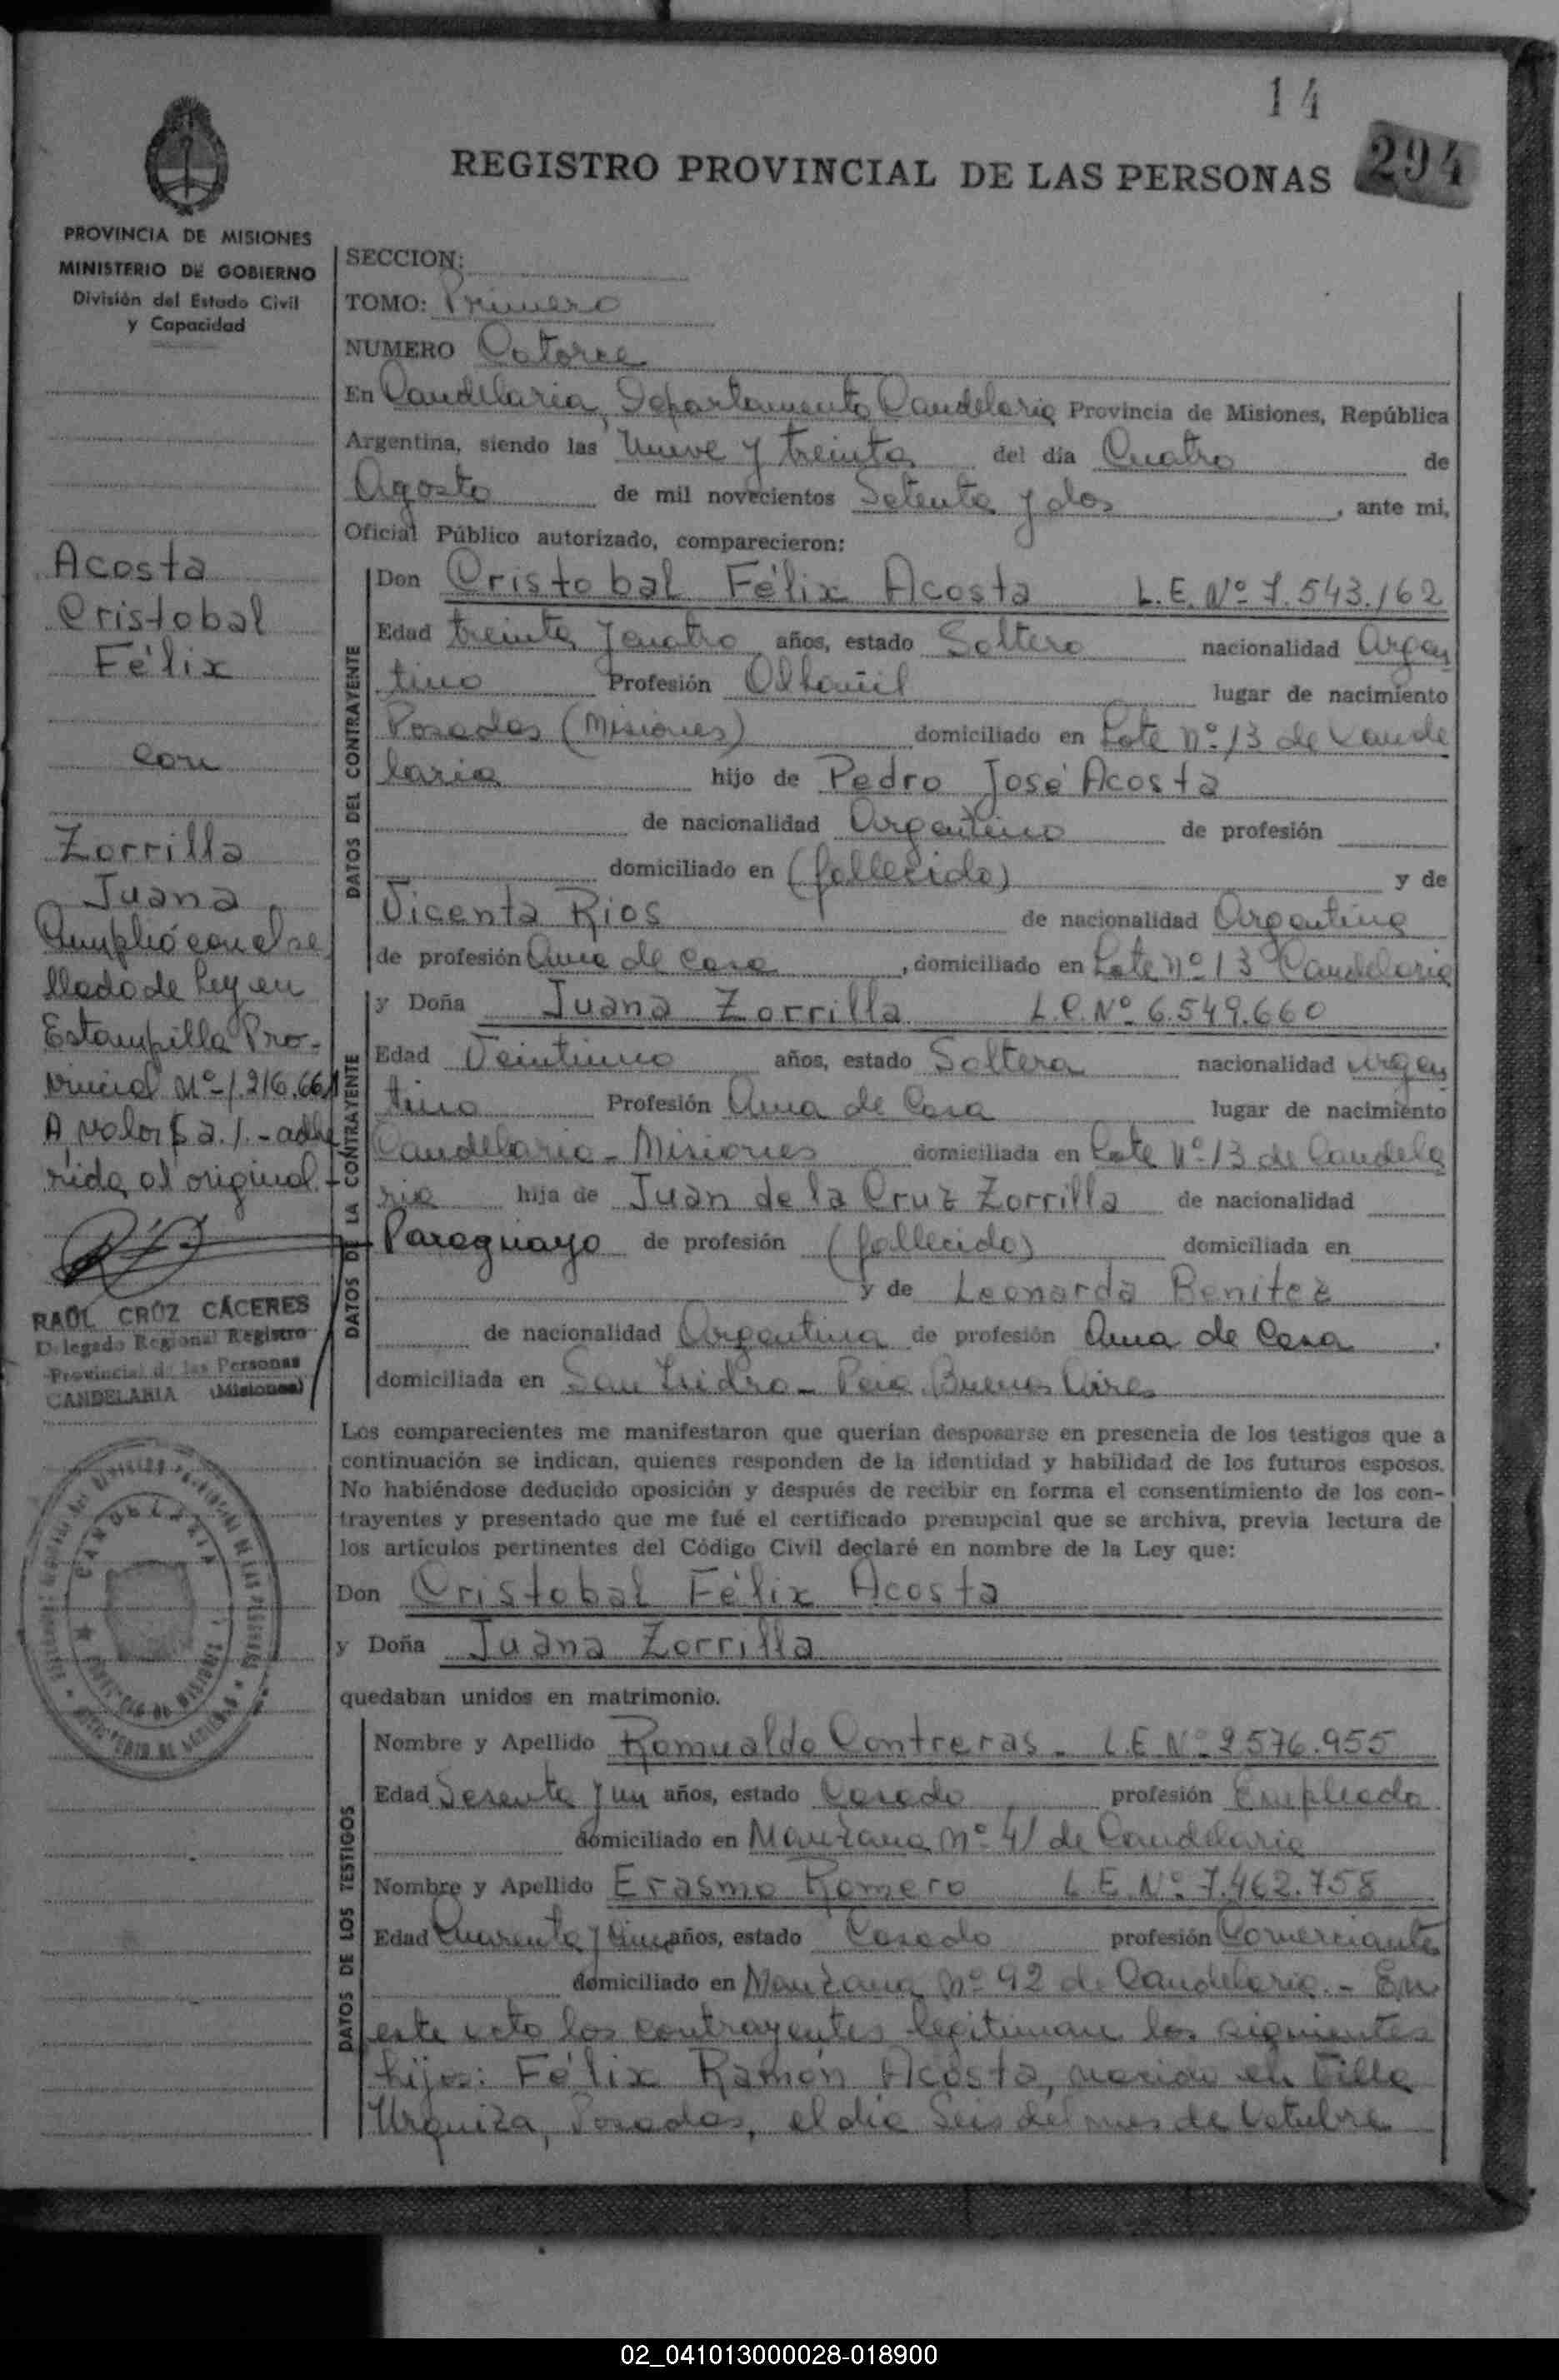 14
REGISTRO PROVINCIAL DE LAS PERSONAS
294
PROVINCIA DE MISIONES
MINISTERIO DE GOBIERNO
División del Estado Civil
y Capacidad
SECCION:
TOMO: Primero
NUMERO Catorce
En Candelaria, Departamento Candelaria Provincia de Misiones, República
Argentina, siendo las Nueve y treinta del día Cuatro de
Agosto de mil novecientos Setenta y dos, ante mi,
Oficial Público autorizado, comparecieron:
Acosta
Cristobal
Félix
con
Zorrilla
Juana
Cumplió con el se
llado de Ley en
Estampilla Pro-
vincial Nº 1.216.661
A valor $ 2.1.- adhe
rida al original.
RAÚL CRUZ CÁCERES
Delegado Regional Registro
Provincial de las Personas
CANDELARIA (Misiones)
CANDELARIA
DATOS DEL CONTRAYENTE
Don Cristobal Félix Acosta L.E. Nº 7.543.162
Edad treinta y cuatro años, estado Soltero nacionalidad Argen
tino Profesión Albañil lugar de nacimiento
Posadas (Misiones) domiciliado en Lote Nº 13 de Cande
laria hijo de Pedro José Acosta
de nacionalidad Argentino de profesión
domiciliado en (fallecido) y de
Vicenta Rios de nacionalidad Argentina
de profesión Ama de casa, domiciliado en Lote nº 13 Candelaria
DATOS DE LA CONTRAYENTE
y Doña Juana Zorrilla L.C. Nº 6.549.660
Edad años, estado Soltera nacionalidad Argen
tina Profesión Ama de Casa lugar de nacimiento
Candelaria - Misiones domiciliada en Lote Nº 13 de Candela
ria hija de Juan de la Cruz Zorrilla de nacionalidad
Paraguayo de profesión (fallecido) domiciliada en
y de Leonarda Benitez
de nacionalidad Argentina de profesión Ama de Casa.
domiciliada en San Isidro - Pcia. Buenos Aires
Los comparecientes me manifestaron que querían desposarse en presencia de los testigos que a
continuación se indican, quienes responden de la identidad y habilidad de los futuros esposos.
No habiéndose deducido oposición y después de recibir en forma el consentimiento de los con-
trayentes y presentado que me fué el certificado prenupcial que se archiva, previa lectura de
los artículos pertinentes del Código Civil declaré en nombre de la Ley que:
Don Cristobal Félix Acosta
y Doña Juana Zorrilla
quedaban unidos en matrimonio.
DATOS DE LOS TESTIGOS
Nombre y Apellido Romualdo Contreras - L.E. Nº 2576.955
Edad Sesenta y un años, estado Casado profesión Empleado
domiciliado en Manzana Nº 41 de Candelaria
Nombre y Apellido Erasmo Romero L.E. Nº 7.462.758
Edad Cuarenta y años, estado Casado profesión Comerciante
domiciliado en Manzana Nº 92 de Candelaria. - En
este acto los contrayentes legitiman los siguientes
hijos: Félix Ramón Acosta, nacido en Villa
Urquiza, Posadas, el día Seis del mes de Octubre
02_041013000028-018900